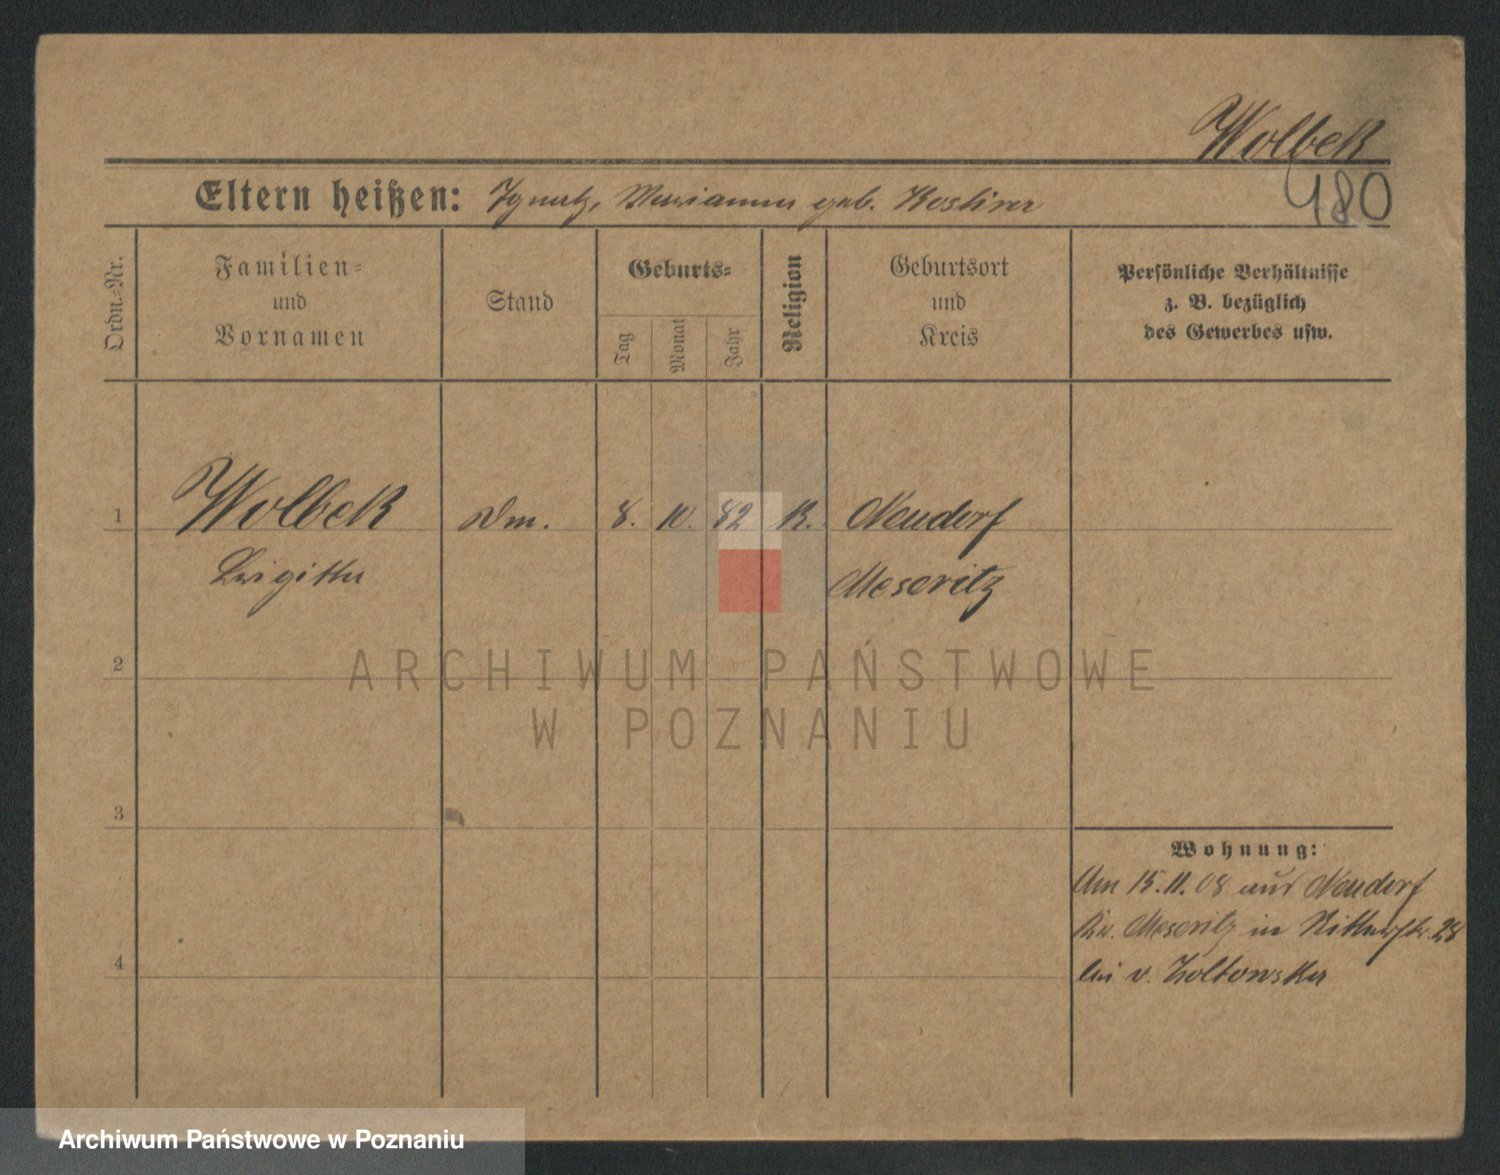 Wolbek
480
Eltern heißen: Ignatz, Marianna geb.
Ordn.-Nr.
Familien- und Vornamen
Stand
Geburts-
Tag
Monat
Jahr
Religion
Geburtsort und Kreis
Persönliche Verhältnisse
z. B. bezüglich
des Gewerbes usw.
1 Wolbek Dm. 8. 10. 82 K. Neudorf
Brigitta Meseritz
2
ARCHIWUM PAŃSTWOWE
W POZNANIU
3
Wohnung:
Am 15.11.08 aus Neudorf
Kr. Meseritz in Ritterstr. 28
bei v. Zoltowska
4
Archiwum Państwowe w Poznaniu